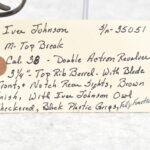 Iver Johnson S/n-35051
M- Top Break
Cal 38 - Double Action Revolver
3 1/4" Top Rib Barrel. With Blade
Front, + Notch Rear Sights, Brown
Finish, With Iver Johnson Owl
Checkered, Black Plastic Grips, Fully Functional